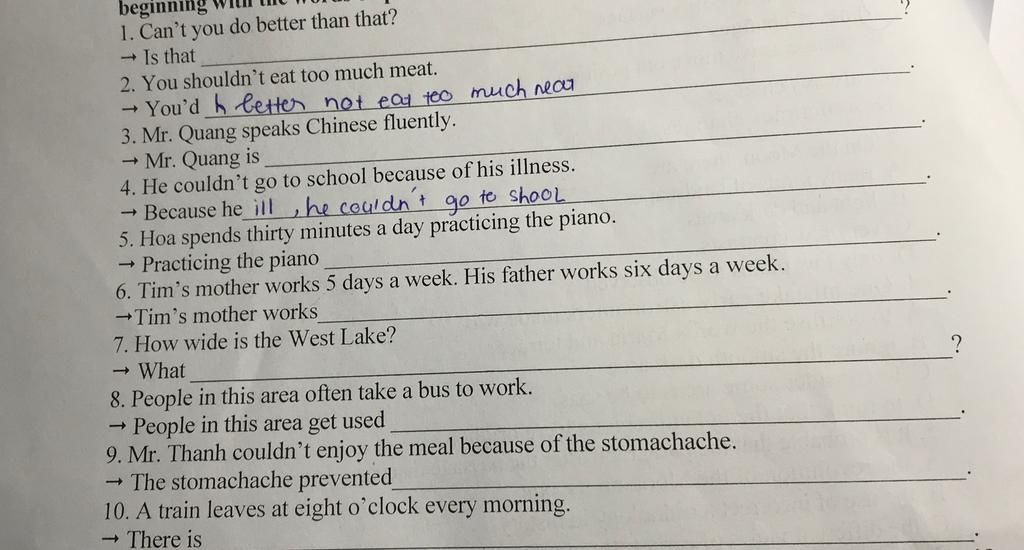 beginning with the words
1. Can't you do better than that?
→ Is that ?
2. You shouldn't eat too much meat.
→ You'd h better not eat too much meat .
3. Mr. Quang speaks Chinese fluently.
→ Mr. Quang is .
4. He couldn't go to school because of his illness.
→ Because he ill , he couldn't go to shool .
5. Hoa spends thirty minutes a day practicing the piano.
→ Practicing the piano .
6. Tim's mother works 5 days a week. His father works six days a week.
→Tim's mother works .
7. How wide is the West Lake?
→ What ?
8. People in this area often take a bus to work.
→ People in this area get used .
9. Mr. Thanh couldn't enjoy the meal because of the stomachache.
→ The stomachache prevented .
10. A train leaves at eight o'clock every morning.
→ There is .